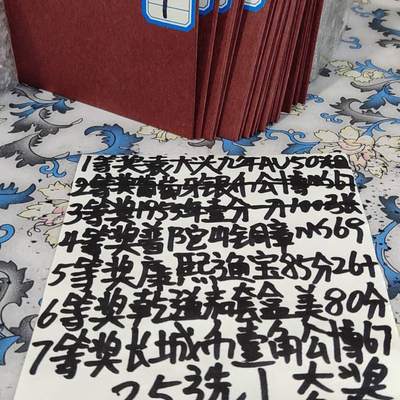 1
1等奖袁大头九年AU50
2等奖葡萄牙银币公博MS67
3等奖1955年壹分一刀100张
4等奖普陀山铜章MS69
5等奖康熙通宝85分26十
6等奖乾隆 套盒美80分
7等奖长城币壹角公博67
25选1大奖